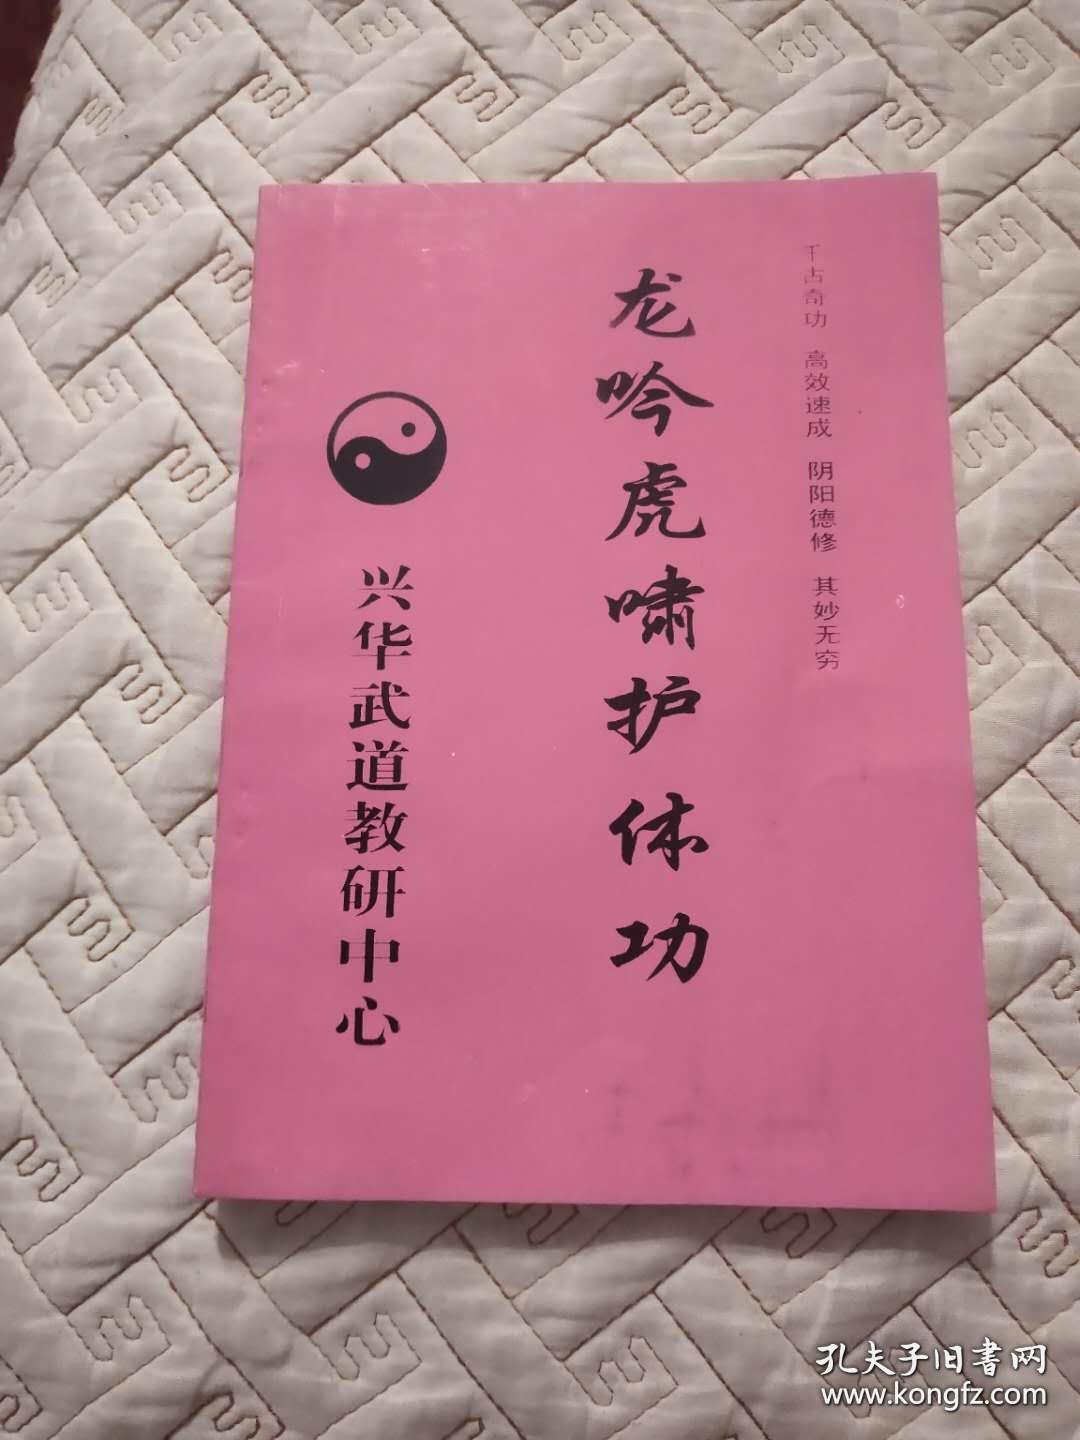 千古奇功 高效速成 阴阳德修 其妙无穷
龙吟虎啸护体功
兴华武道教研中心
孔夫子旧書网
www.kongfz.com